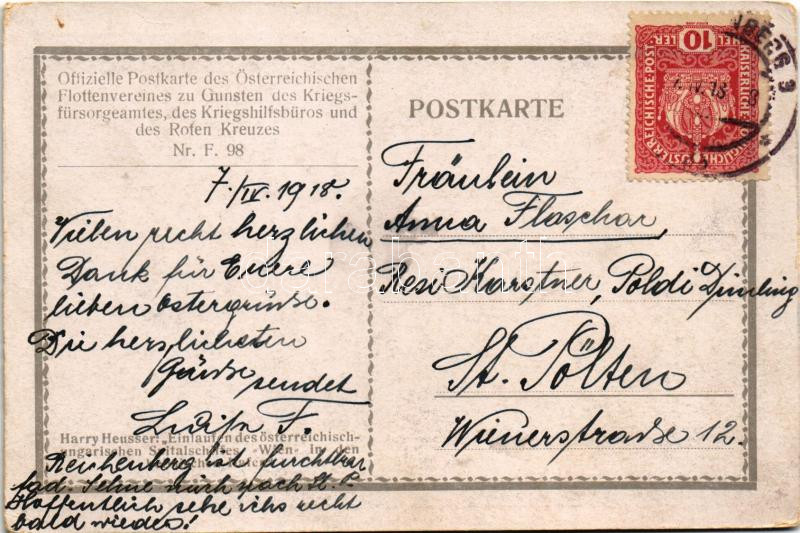 Offizielle Postkarte des Österreichischen
Flottenvereines zu Gunsten des Kriegs-
fürsorgeamtes, des Kriegshilfsbüros und
des Roten Kreuzes
Nr. F. 98
7./IV. 1918.
Vielen recht herzlichen
Dank für Euere
lieben Ostergrüße.
Die herzlichsten
Grüsse sendet
Luise F.
Harry Heusser: „Einlaufen des österreichisch-
ungarischen Spitalschiffes „Wien“ in den
Reichenberg ist furchtbar
fad. Sehne mich nach St. P.
Hoffentlich sehe ich's recht
bald wieder!
POSTKARTE
Fräulein
Anna Flaschar
Resi Karstner, Poldi
St. Pölten
Wienerstrasse 12.
10
HEL
LER
KAISERLICHE KÖNIGLICHE
ÖSTERREICHISCHE POST
NBERG 9
darabanth